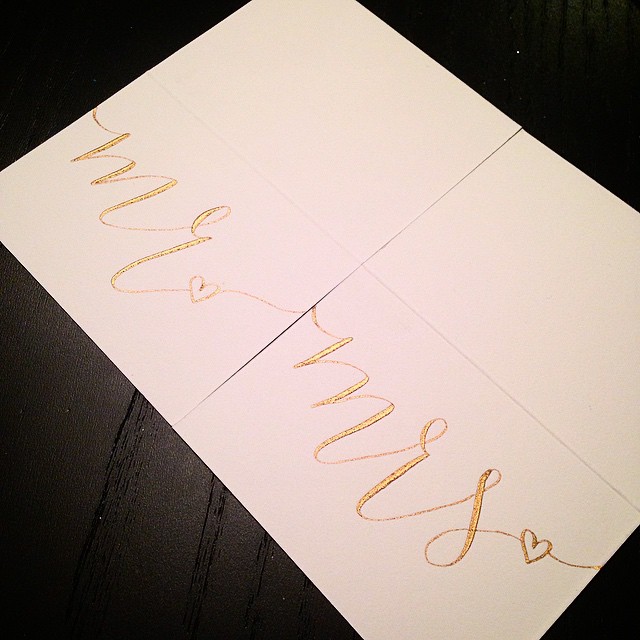 mr
mrs